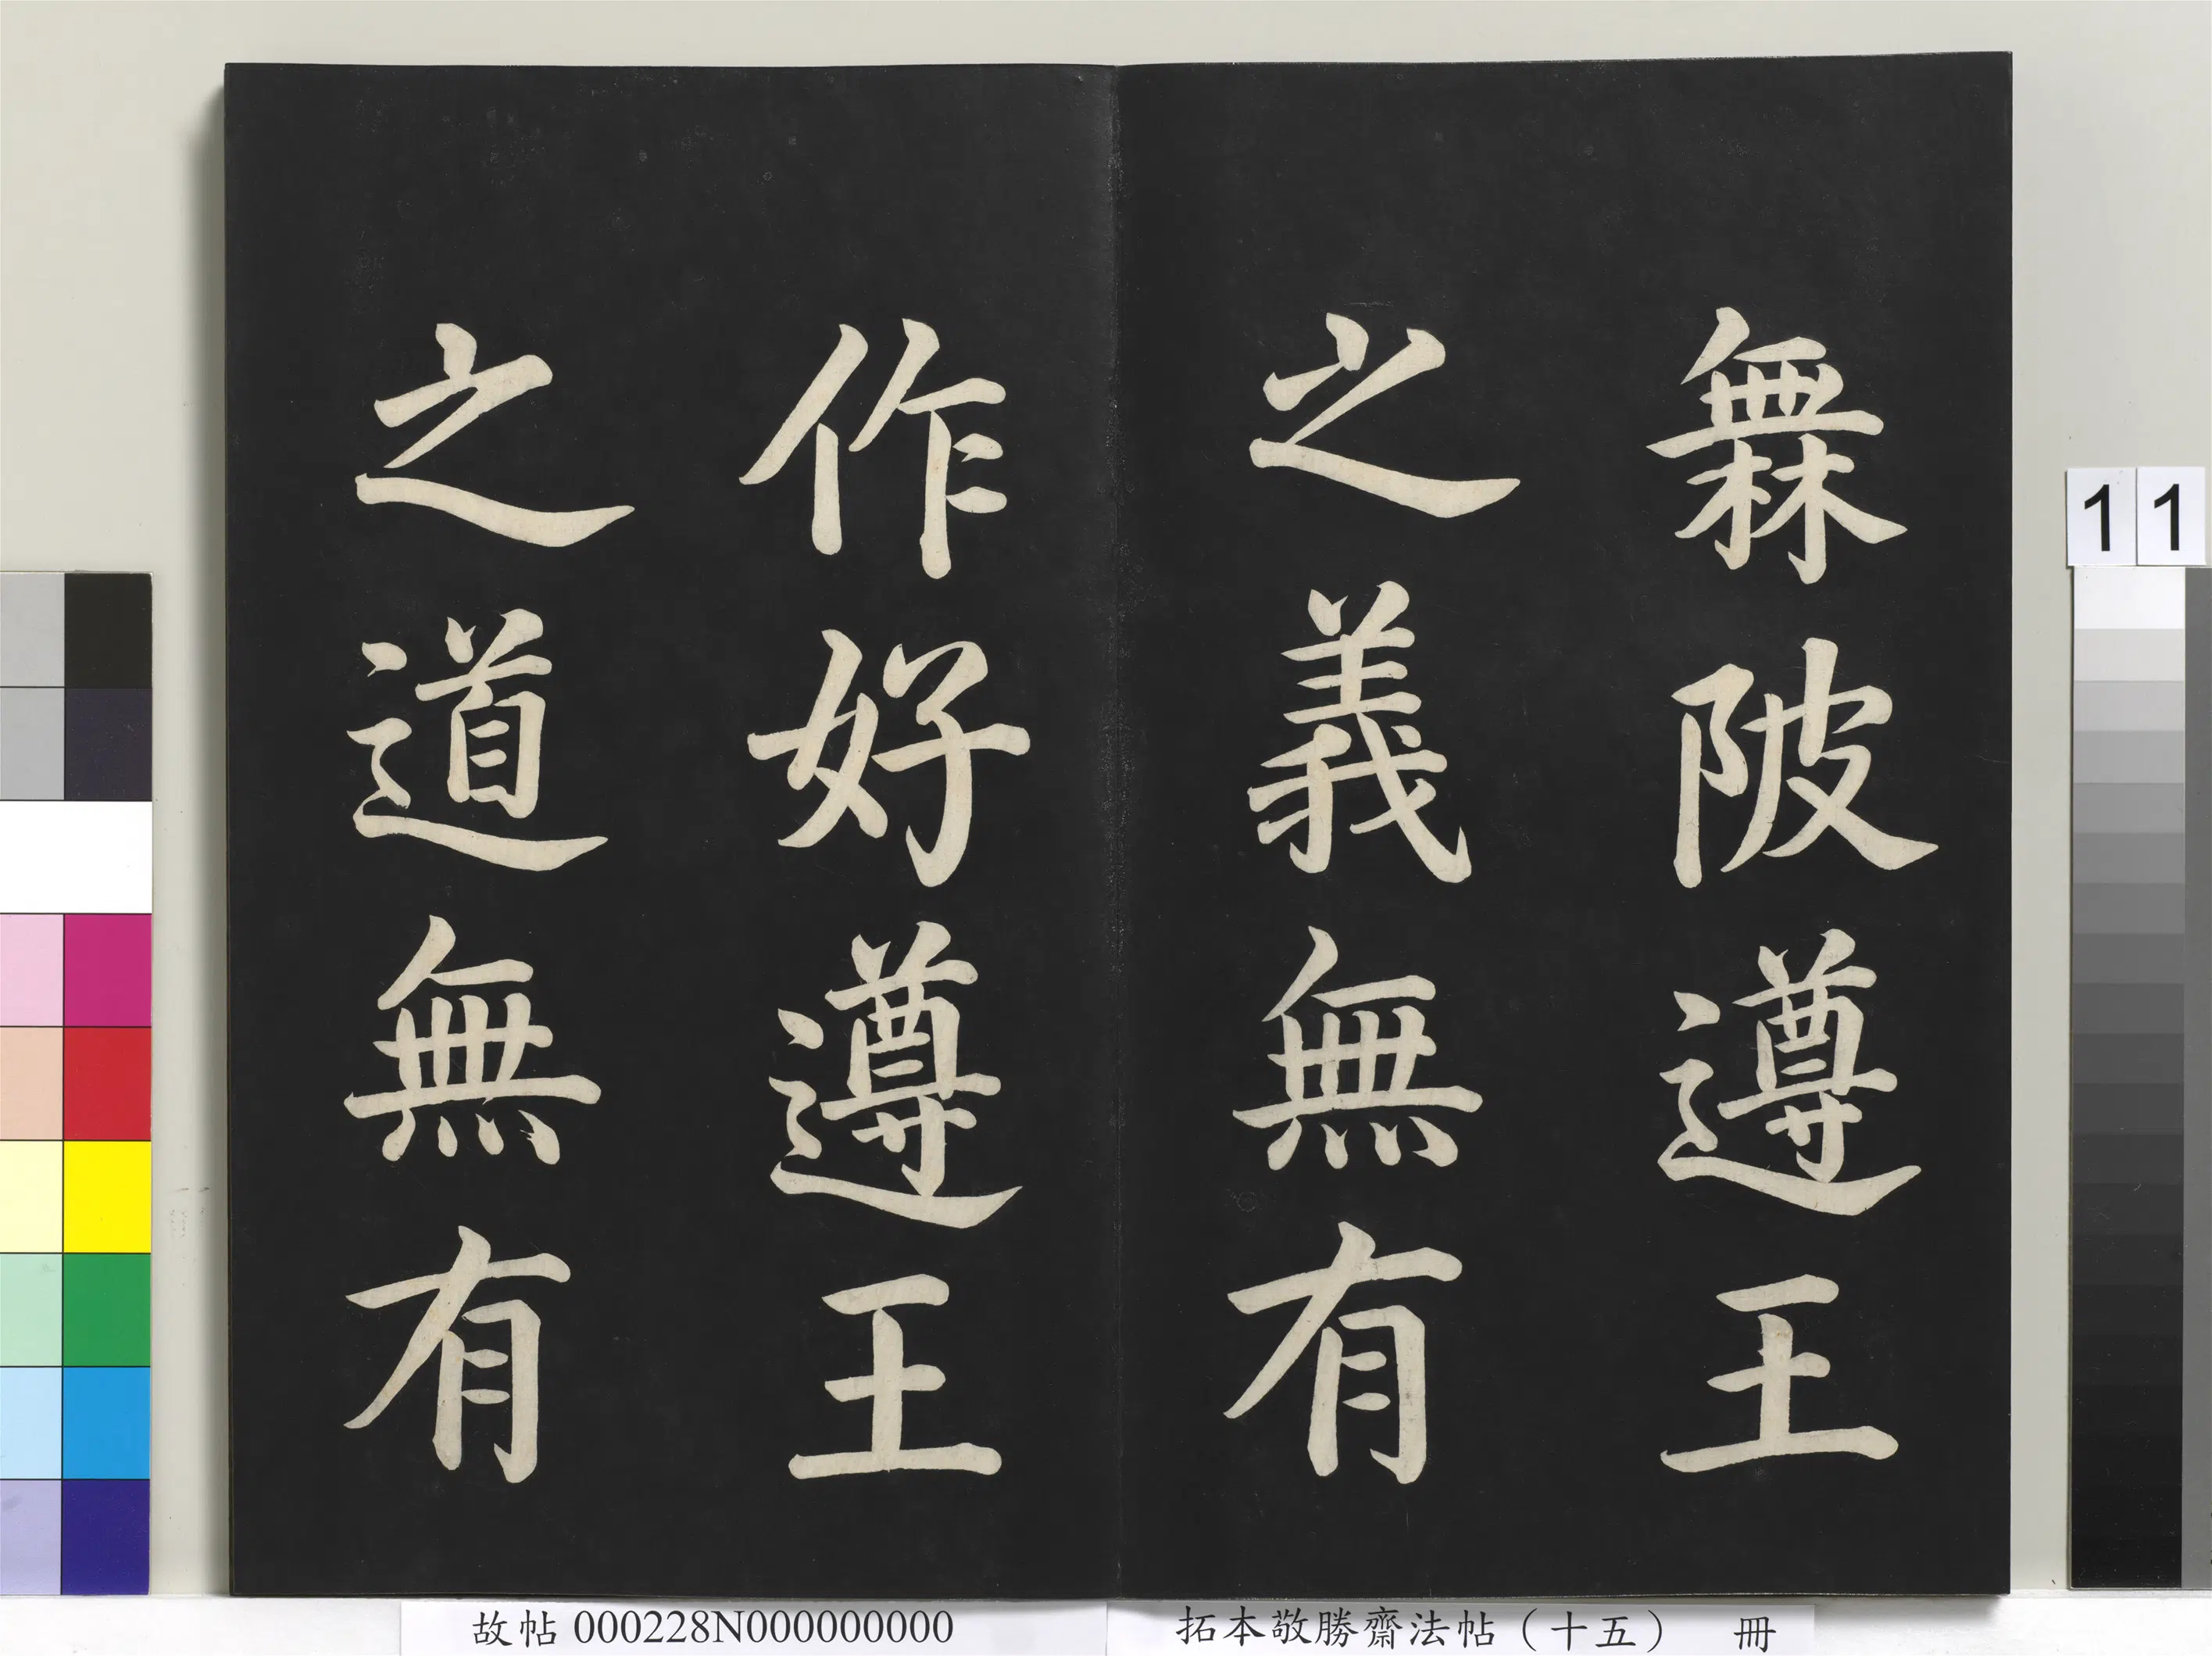 無陂遵王
之義無有
作好遵王
之道無有
11
故帖 000228N000000000
拓本敬勝齋法帖（十五） 冊